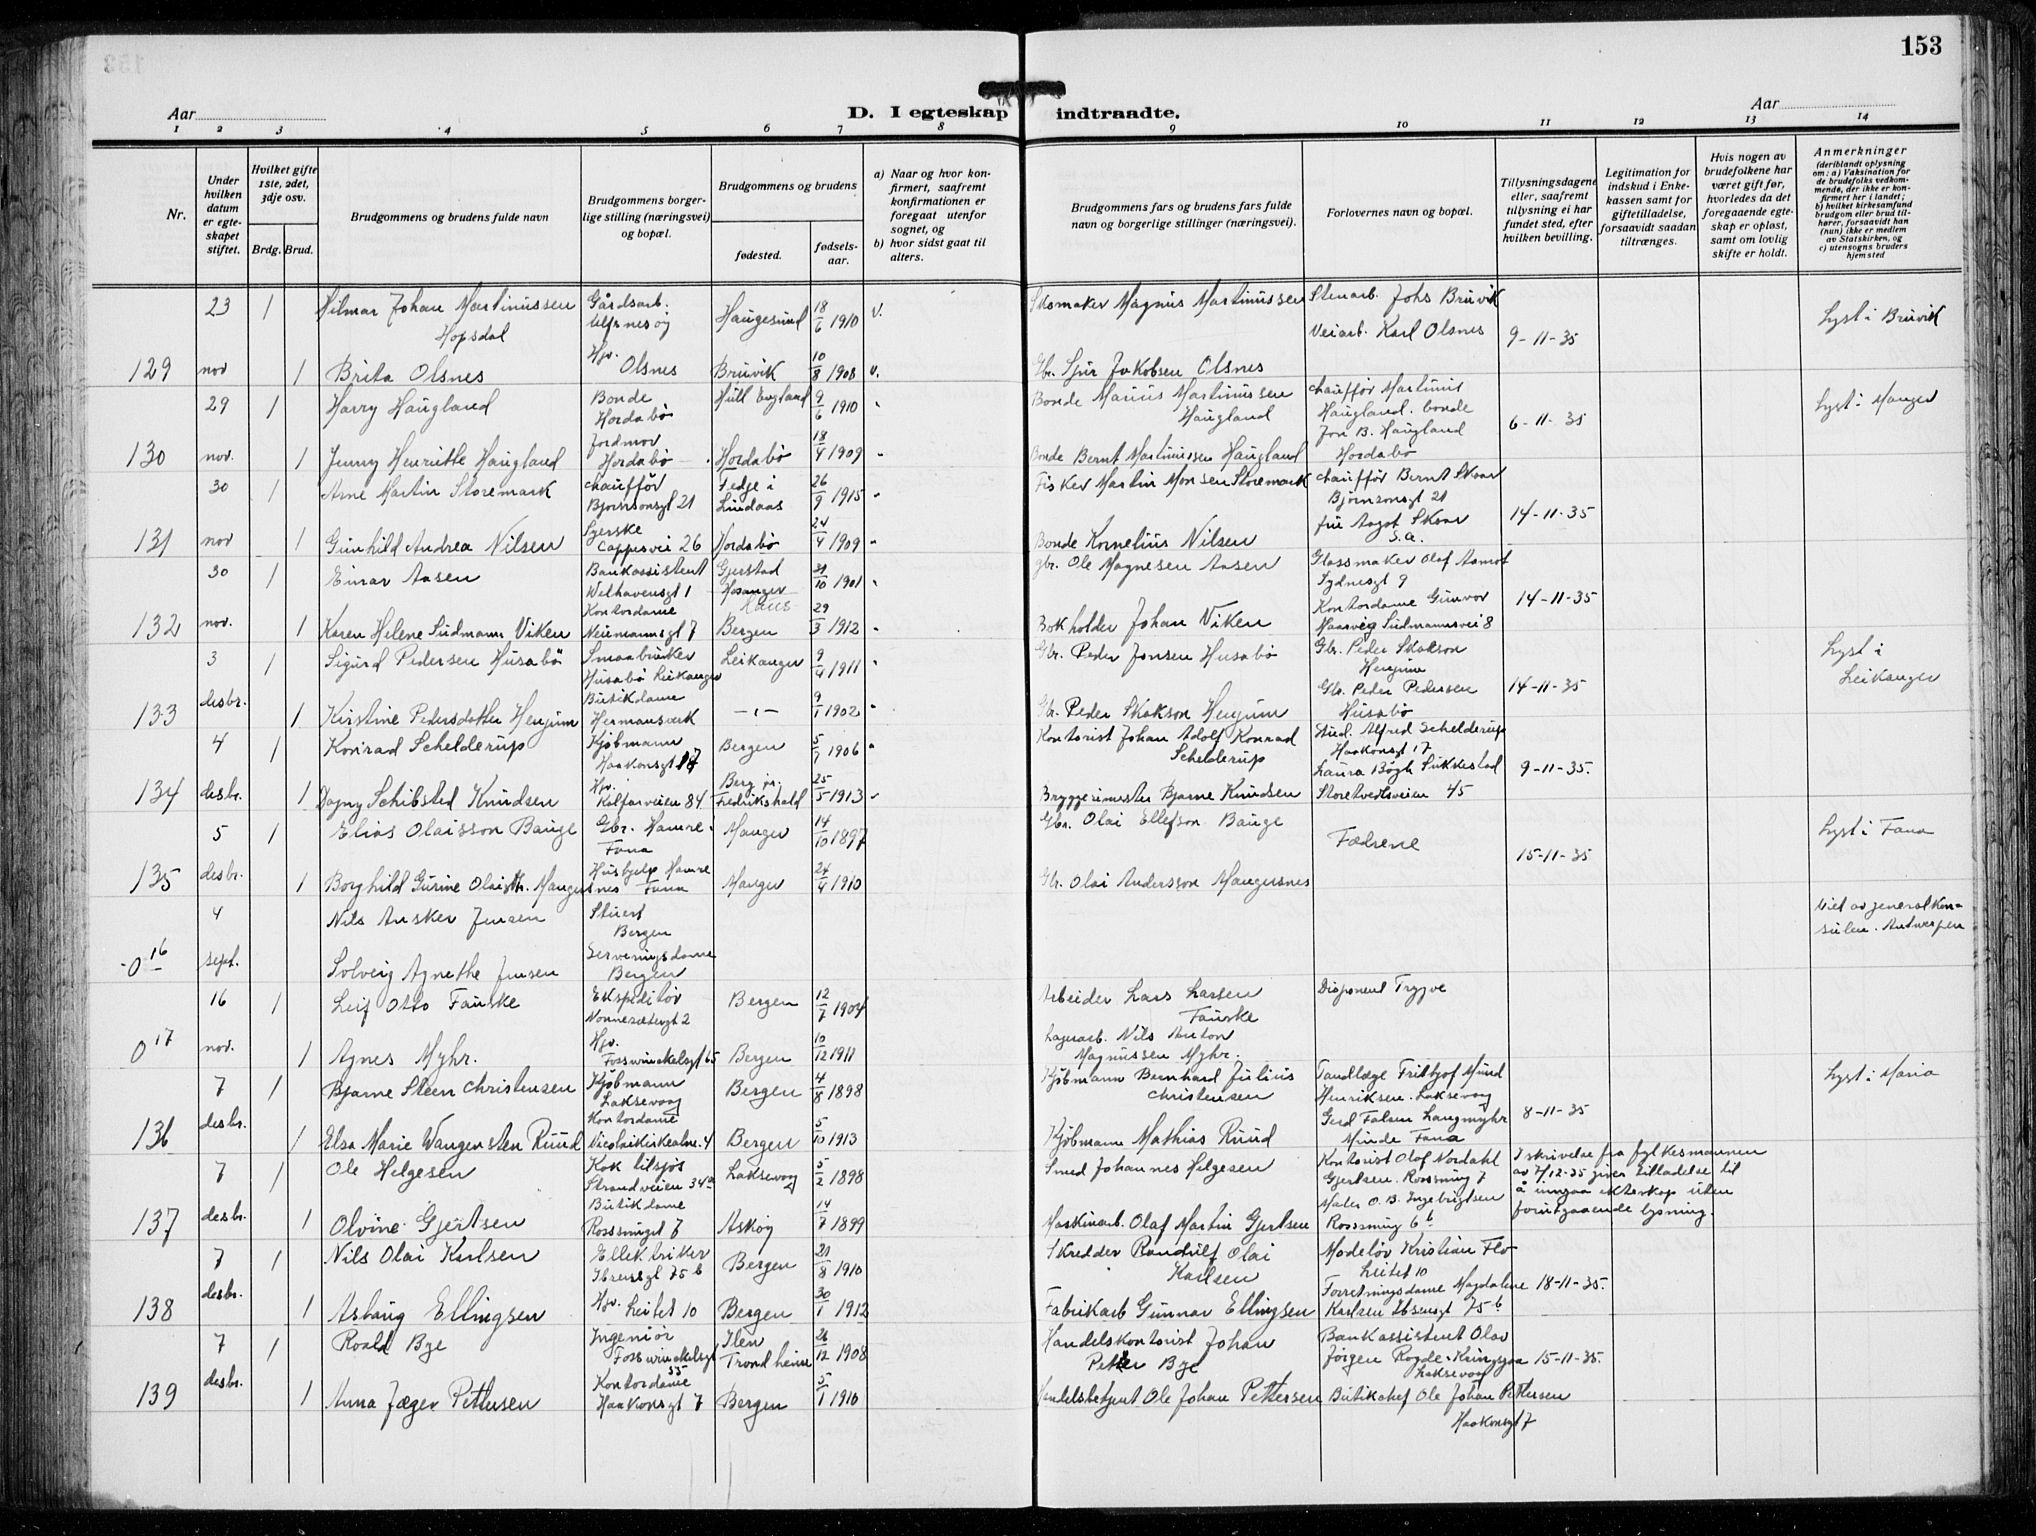 153
Aar
D. I egteskap indtraadte.
Aar
1 2 3 4 5 6 7 8 9 10 11 12 13 14
Nr.
Under hvilken datum er egteskapet stiftet.
Hvilket gifte 1ste, 2det, 3dje osv.
Brdg. Brud.
Brudgommens og brudens fulde navn
Brudgommens borgerlige stilling (næringsvei) og bopæl.
Brudgommens og brudens
fødested.
fødselsaar.
a) Naar og hvor konfirmert, saafremt konfirmationen er foregaat utenfor sognet, og
b) hvor sidst gaat til alters.
Brudgommens fars og brudens fars fulde navn og borgerlige stillinger (næringsvei).
Forlovernes navn og bopæl.
Tillysningsdagene eller, saafremt tillysning ei har fundet sted, efter hvilken bevilling.
Legitimation for indskud i Enkekassen samt for giftetilladelse, forsaavidt saadan tiltrænges.
Hvis nogen av brudefolkene har været gift før, hvorledes da det foregaaende egteskap er opløst, samt om lovlig skifte er holdt.
Anmerkninger
(deriblandt oplysning om: a) Vaksination for de brudefolks vedkommende, der ikke er konfirmert her i landet; b) hvilket kirkesamfund brudgom eller brud tilhører, forsaavidt han (hun) ikke er medlem av Statskirken, og c) utensogns bruders hjemsted
23 1 Hilmar Johan Martinussen Hopsdal Gårdsarb. Ulfsnesøy Haugesund 18/6 1910 v. Skomaker Magnus Martinussen Stenarb. Johs Bruvik Lyst i Bruvik
Veiarb. Karl Olsnes 9-11-35
129 nov 1 Brita Olsnes Hjv. Olsnes Bruvik 10/8 1908 v. Gbr. Sjur Jakobsen Olsnes
29 1 Harry Haugland Bonde Hordabø Hull England 9/6 1910 Bonde Marius Martinussen Haugland chauffør Martinus Haugland. bonde Jon B. Haugland Hordabø 6-11-35 Lyst i Manger
130 nov. 1 Jenny Henriette Haugland Jordmor Hordabø Hordabø 18/4 1909 Bonde Bernt Martinussen Haugland
30 1 Arne Martin Storemark chauffør Bjørnsonsgt 21 Fedje i Lindaas 26/9 1915 Fisker Martin Monsen Storemark chauffør Bernt Skaar Bjørnsonsgt 21 fru Aagot Skaar S.a. 14-11-35
131 nov 1 Gunhild Andrea Nilsen Syerske Cappesvei 26 Hordabø 24/4 1909 Bonde Kornelius Nilsen
30 1 Einar Aasen Bankassistent Welhavensgt 1 Gjerstad Hosanger Haus 31/10 1901 gbr. Ole Magnesen Aasen Glassmaker Olaf Sydnesgt 9 Kontordame Gunvor Sudmannsvei 8 14-11-35
132 nov. 1 Karen Helene Sudmann Viken Kontordame Neumannsgt 7 Bergen 29/3 1912 Bokholder Johan Viken
3 1 Sigurd Pedersen Husabø Smaabruker Husabø Leikanger Leikanger 9/4 1911 Gbr. Peder Jonsen Husabø Gbr. Peder Skakson Henjum Gbr. Peder Pedersen Husabø 14-11-35 Lyst i Leikanger
133 desbr. 1 Kirstine Pedersdatter Henjum Butikdame Hermansverk -"- 9/1 1902 Gbr. Peder Skakson Henjum
4 1 Konrad Schelderup Kjøbmann Haakonsgt 17 Bergen 5/7 1906 Kontorist Johan Adolf Konrad Schelderup Stud. Alfred Schelderup Haakonsgt 17 Laura Bøgh Sukkestad Storetveitsveien 45 9-11-35.
134 desbr. 1 Dagny Schibsted Knudsen Hjv. Kalfarveien 84 Berg pr. Fredrikshald 25/5 1913 Bryggerimester Bjarne Knudsen
5 1 Elias Olaisson Bauge Gbr. Hamre Fana Manger 14/10 1897 Gbr. Olai Ellefson Bauge Fædrene 15-11-35 Lyst i Fana
135 desbr. 1 Borghild Gurine Olaisdtr. Mangersnes Hushjelp Hamre Fana Manger 24/4 1910 Gbr. Olai Andersson Mangersnes
4 Nils Ansker Jensen Stuert Bergen Viet av generalkonsulen. Antwerpen
016 sept. Solveig Agnethe Jensen Serveringsdame Bergen
16 1 Leif Otto Fauske Ekspeditør Nonnesætergt 2 Bergen 12/7 1904 Arbeider Lars Larsen Fauske Disponent Trygve
017 nov. 1 Agnes Myhr. Hjv. Fosswinckelsgt 65 Bergen 10/12 1911 Lagerarb. Nils Anton Magnussen Myhr.
7 1 Bjarne Steen Christensen Kjøbmann Laksevaag Bergen 4/8 1898 Kjøbmann Bernhard Julius Christensen Tandlæge Fritjof Mund Henriksen. Laksevaag Gerd Falsen Langmyhr Minde Fana 8-11-35 Lyst i Maria
136 desbr. 1 Elsa Marie Wangensten Ruud Kontordame Nicolaikirkealm. 4 Bergen 5/10 1913 Kjøbmann Mathias Ruud
7 1 Ole Helgesen Kok tilsjøs Strandveien 34a Laksevaag 5/2 1898 Smed Johannes Helgesen Kontorist Olaf Nordahl Gjertsen. Rosesmug 7 Maler O.B. Ingebrigtsen Rosesmug 6b I skrivelse fra fylkesmannen av 7/12-35 gives tilladelse til å inngaa ekteskap uten forutgaaende lysning.
137 desbr. 1 Olvine Gjertsen Butikdame Rosesmuget 7 Askøy 14/7 1899 Maskinarb. Olaf Martin Gjertsen
7 1 Nils Olai Karlsen Elektriker Ibsensgt 75b Bergen 21/8 1910 Skredder Randulf Olai Karlsen Modelør Kristian Flo Leitet 10 Forretningsdame Magdalene Karlsen Ibsensgt 75b 18-11-35.
138 desbr. 1 Aslaug Ellingsen Hjv. Leitet 10 Bergen 30/1 1912 Fabrikarb Gunnar Ellingsen
7 1 Roald Bye Ingeniør Fosswinckelsgt 55 Ilen Trondheim 26/12 1908 Handelskontorist Johan Petter Bye Bankassistent Olav Jørgen Rogde. Kringsjaa Laksevaag 15-11-35.
139 desbr. 1 Anna Jæger Pettersen Kontordame Haakonsgt 7 Bergen 5/1 1910 Handelsbetjent Ole Johan Pettersen Butikchef Ole Johan Pettersen Haakonsgt 7